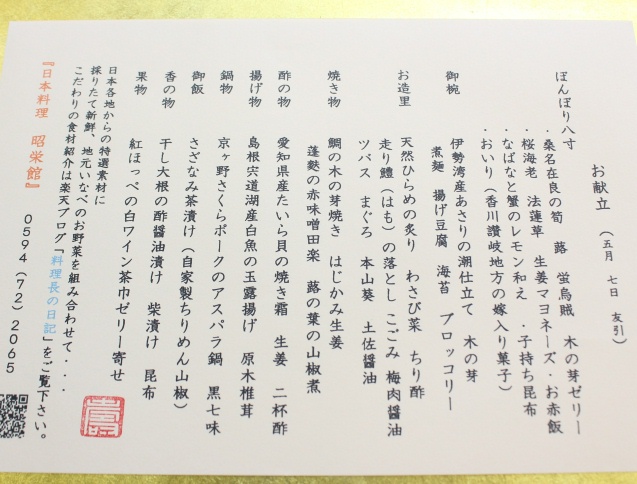 お献立 (五月 七日 友引)
ぼんぼり八寸
・桑名在良の筍 蕗 蛍烏賊 木の芽ゼリー
・桜海老 法蓮草 生姜マヨネーズ・お赤飯
・なばなと蟹のレモン和え ・子持ち昆布
・おいり(香川讃岐地方の嫁入り菓子)
御椀 伊勢湾産あさりの潮仕立て 木の芽
煮麺 揚げ豆腐 海苔 ブロッコリー
お造里 天然ひらめの炙り わさび菜 ちり酢
走り鱧(はも)の落とし こごみ 梅肉醤油
ツバス まぐろ 本山葵 土佐醤油
焼き物 鯛の木の芽焼き はじかみ生姜
蓬麩の赤味噌田楽 蕗の葉の山椒煮
酢の物 愛知県産たいら貝の焼き霜 生姜 二杯酢
揚げ物 島根宍道湖産白魚の玉露揚げ 原木椎茸
鍋物 京ヶ野さくらポークのアスパラ鍋 黒七味
御飯 さざなみ茶漬け(自家製ちりめん山椒)
香の物 干し大根の酢醤油漬け 柴漬け 昆布
果物 紅ほっぺの白ワイン茶巾ゼリー寄せ
日本各地からの特選素材に
採りたて新鮮、地元いなべのお野菜を組み合わせて・・・
こだわりの食材紹介は楽天ブログ「料理長の日記」をご覧下さい。
『日本料理 昭栄館』 0594(72)2065